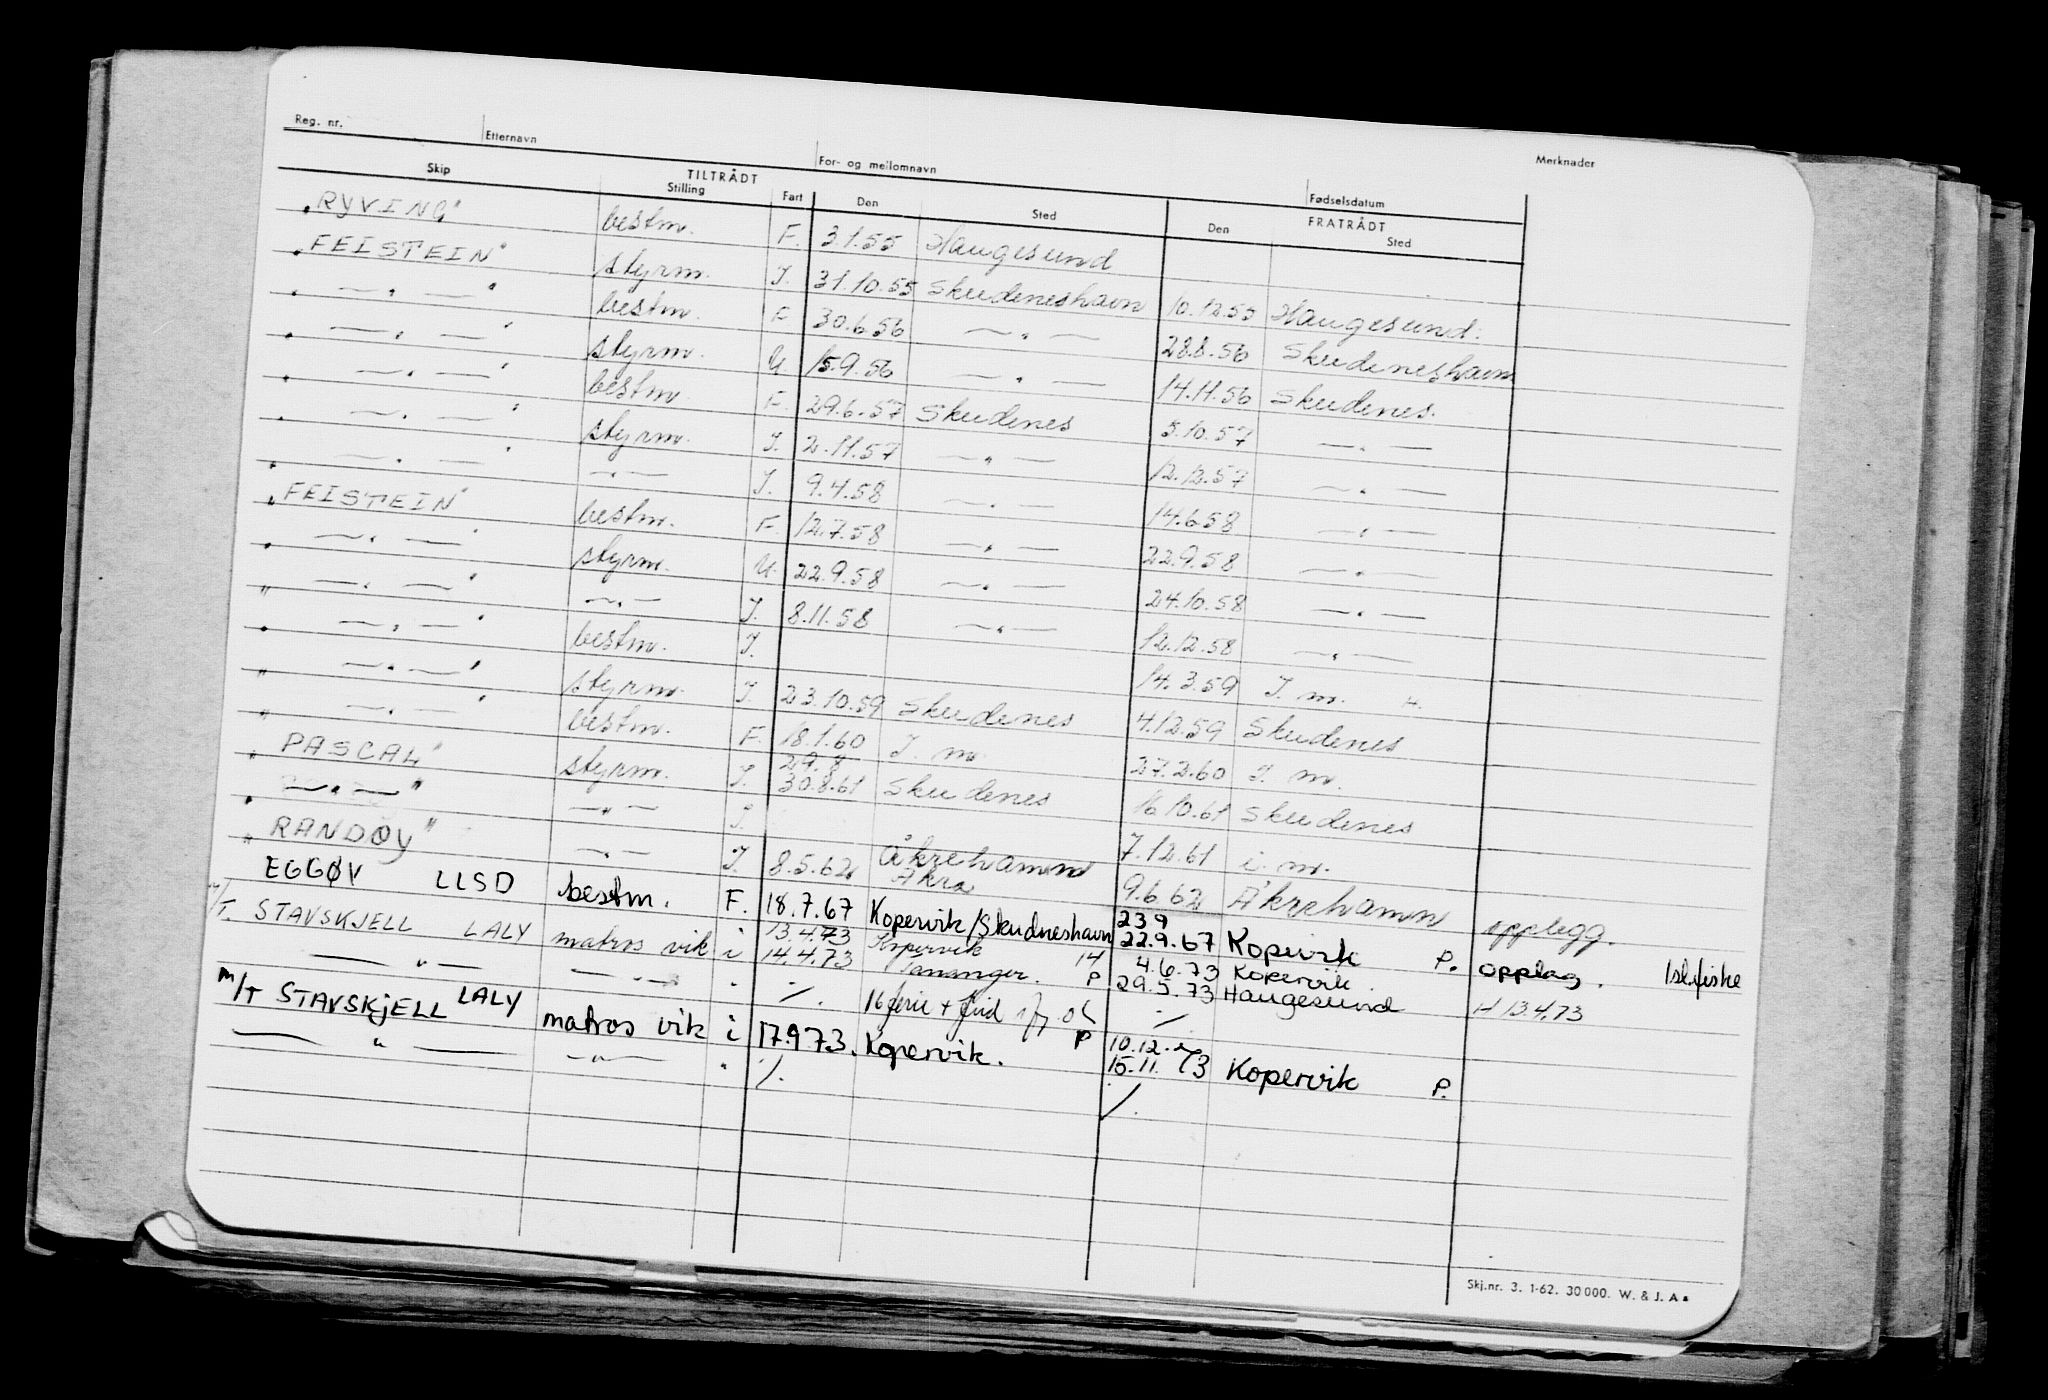 Reg. nr. Etternavn For- og mellomnavn Fødselsdatum Merknader
Skip TILTRÅDT Stilling Fart Den Sted FRATRÅDT Den Sted
"RYVING" bestm. F. 3.1.55 Haugesund
"FEISTEIN" styrm. I. 31.10.55 Skudeneshavn 10.12.55 Haugesund.
" — " — " bestm. F. 30.6.56 — " — 28.8.56 Skudeneshavn
" — " — " styrm. U. 15.9.56 — " — 14.11.56 Skudenes.
" — " — " bestm. F. 29.6.57 Skudenes 5.10.57 — " —
" — " — " styrm. I. 2.11.57 — " — 12.12.57 — " —
" — " — " — " — I. 9.4.58 — " — 14.6.58 — " —
"FEISTEIN" bestm. F. 12.7.58 — " — 22.9.58 — " —
" — " — " styrm. U. 22.9.58 — " — 24.10.58 — " —
" — " — " — " — I. 8.11.58 — " — 12.12.58 — " —
" — " — " bestm. I. 14.3.59 I. m. H.
" — " — " styrm. I. 23.10.59 Skudenes 4.12.59 Skudenes
" — " — " bestm. F. 18.1.60 I. m. 27.2.60 I. m.
"PASCAL" styrm. I. 29.8 30.8.61 Skudenes 16.10.61 Skudenes
" — " — " — " — I. 7.12.61 i. m.
"RANDØY" — " — I. 8.5.62 Åkrehamn Åkra 9.6.62 Åkrehamn opplegg.
EGGØV LLSD bestm. F. 18.7.67 Kopervik/Skudneshavn 23.9 22.9.67 Kopervik P. opplag. Isl.fiske
M/T. STAVSKJELL LALY matros vik i 13.4.73 14.4.73 Kopervik Tananger. 14 P 4.6.73 29.5.73 Kopervik. Haugesund H 13.4.73
— " — — " — " ./. 16 ferie + frid ./.
M/T STAVSKJELL LALY matros vik i 17.9.73. Kopervik. P 10.12. 15.11. 73 Kopervik P.
— " — — " — " ./. ./.
Skj.nr. 3. 1-62. 30 000. W. & J. A s